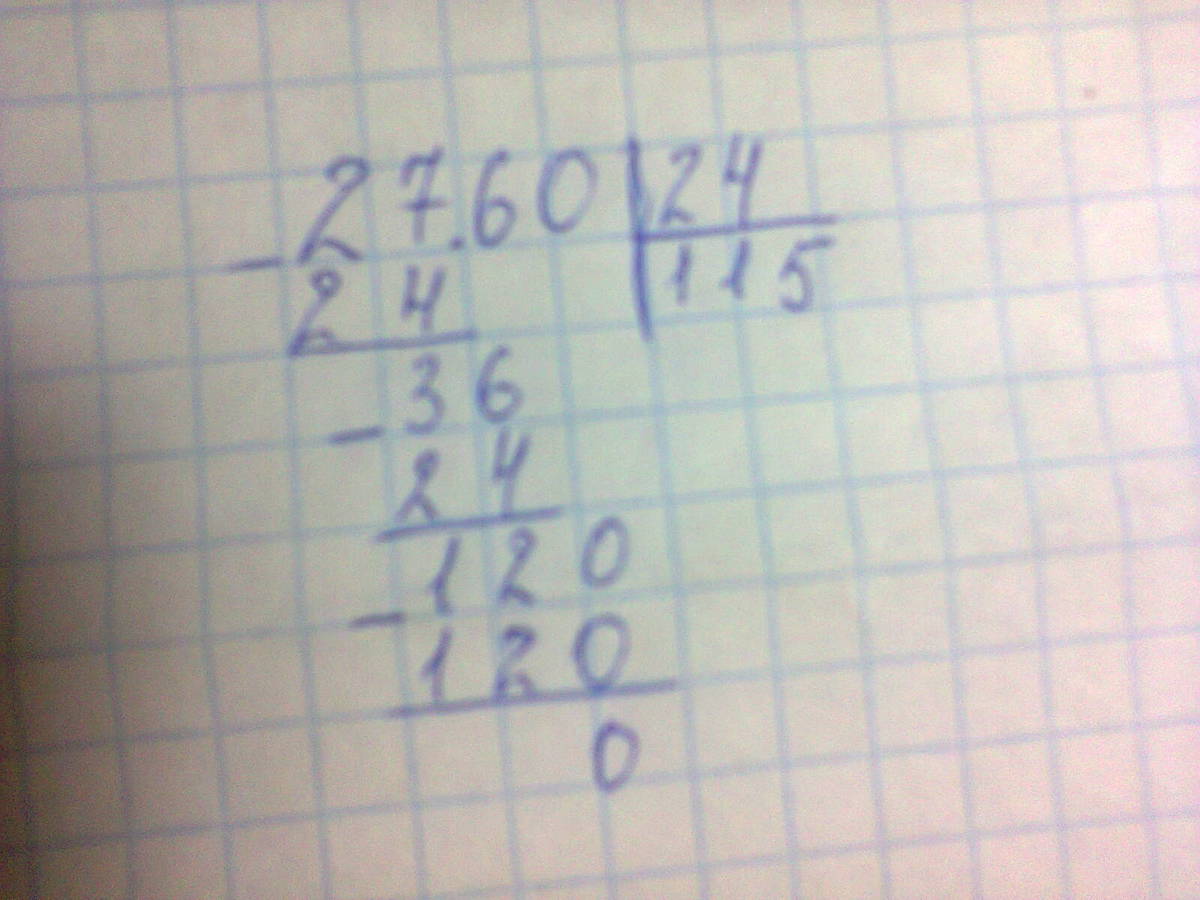 27.60 24
- 24 115
36
- 24
120
- 120
0